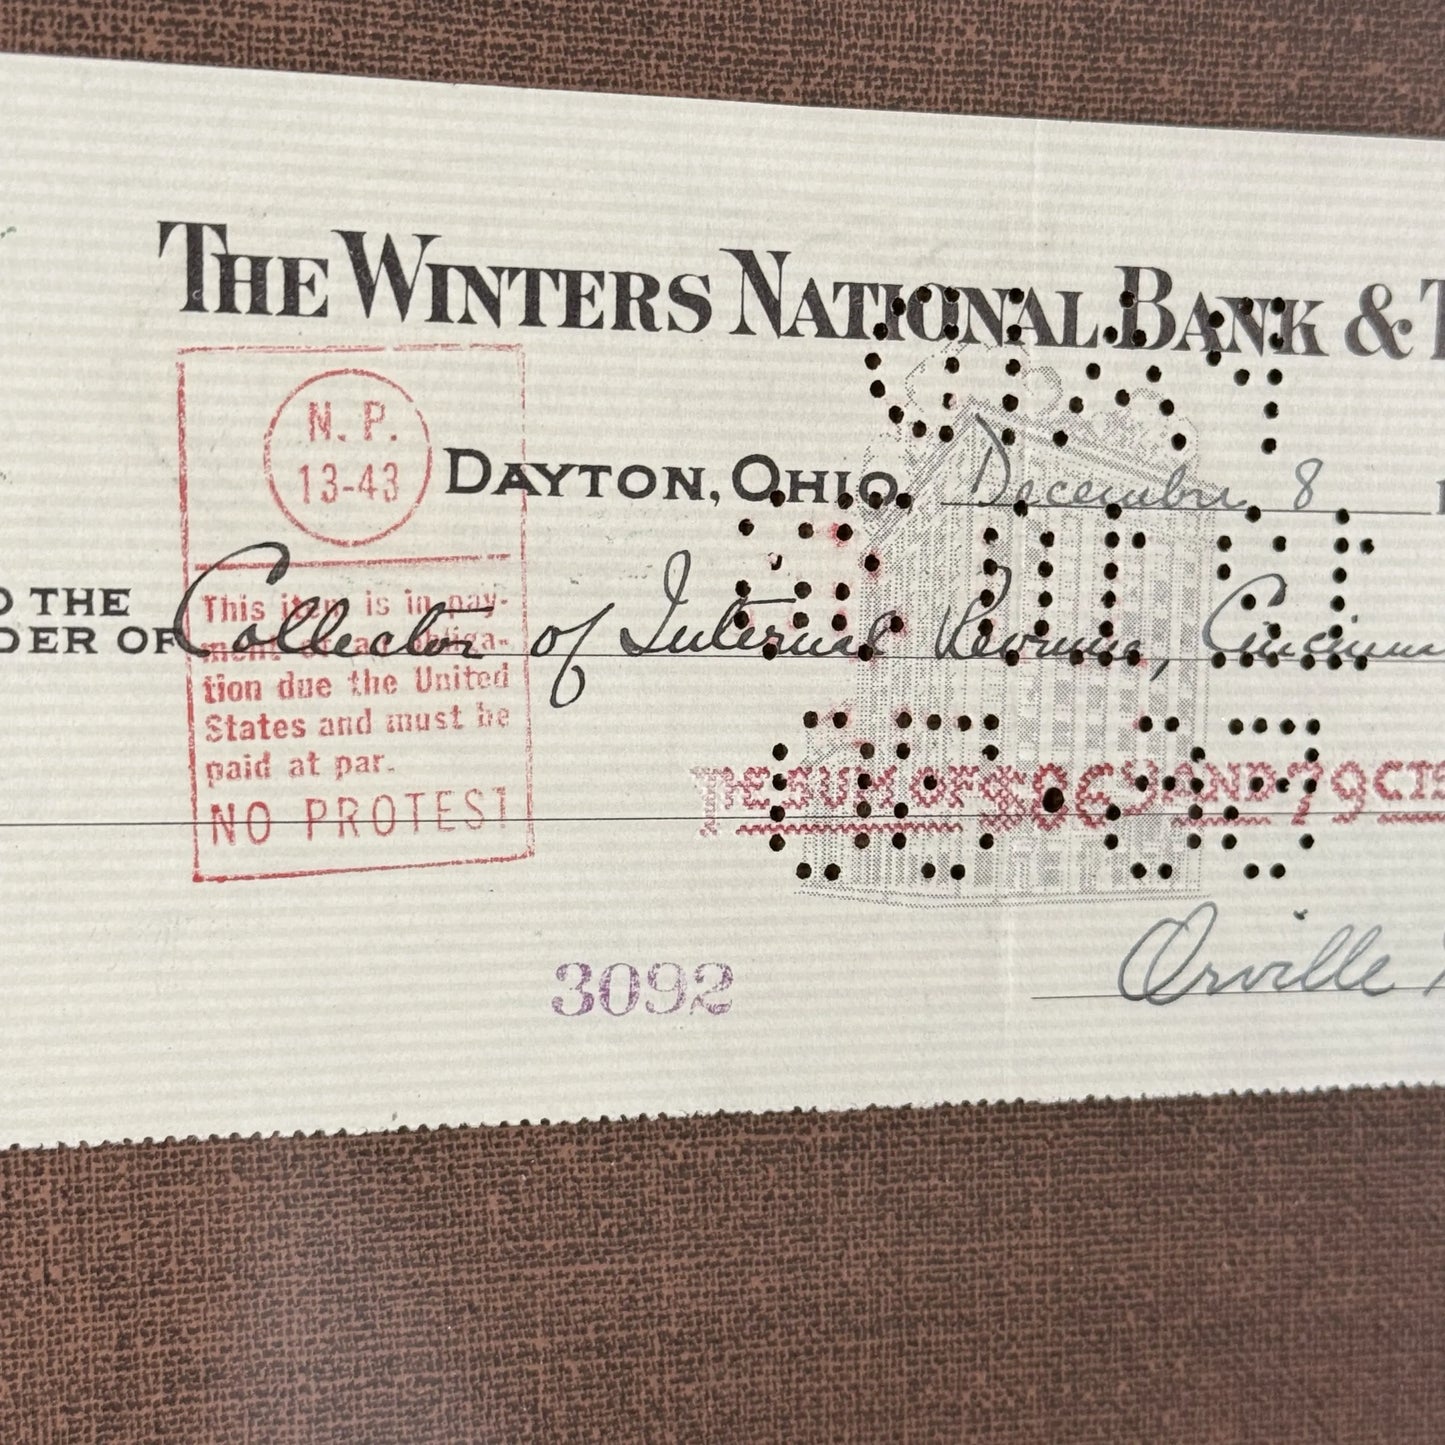 THE WINTERS NATIONAL BANK & T
N. P.
13-43
DAYTON, OHIO, December 8
O THE
DER OF Collector of Internal Revenue, Cincinna
This item is in pay-
ment of an obliga-
tion due the United
States and must be
paid at par.
NO PROTEST
THE SUM OF AND 79 CTS
3092
Orville